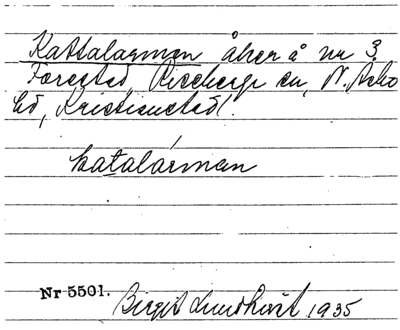 Kattalarmen åker å nr 3
Forestad, Riseberga sn, N. Åsbo
hd, Kristianstad l.
katalarman
Nr 5501. Birgit Lundkvist 1935